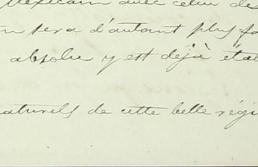 Mexicain avec celui de
sera d'autant plus fa
absolu y est déjà éta
naturels de cette belle régi